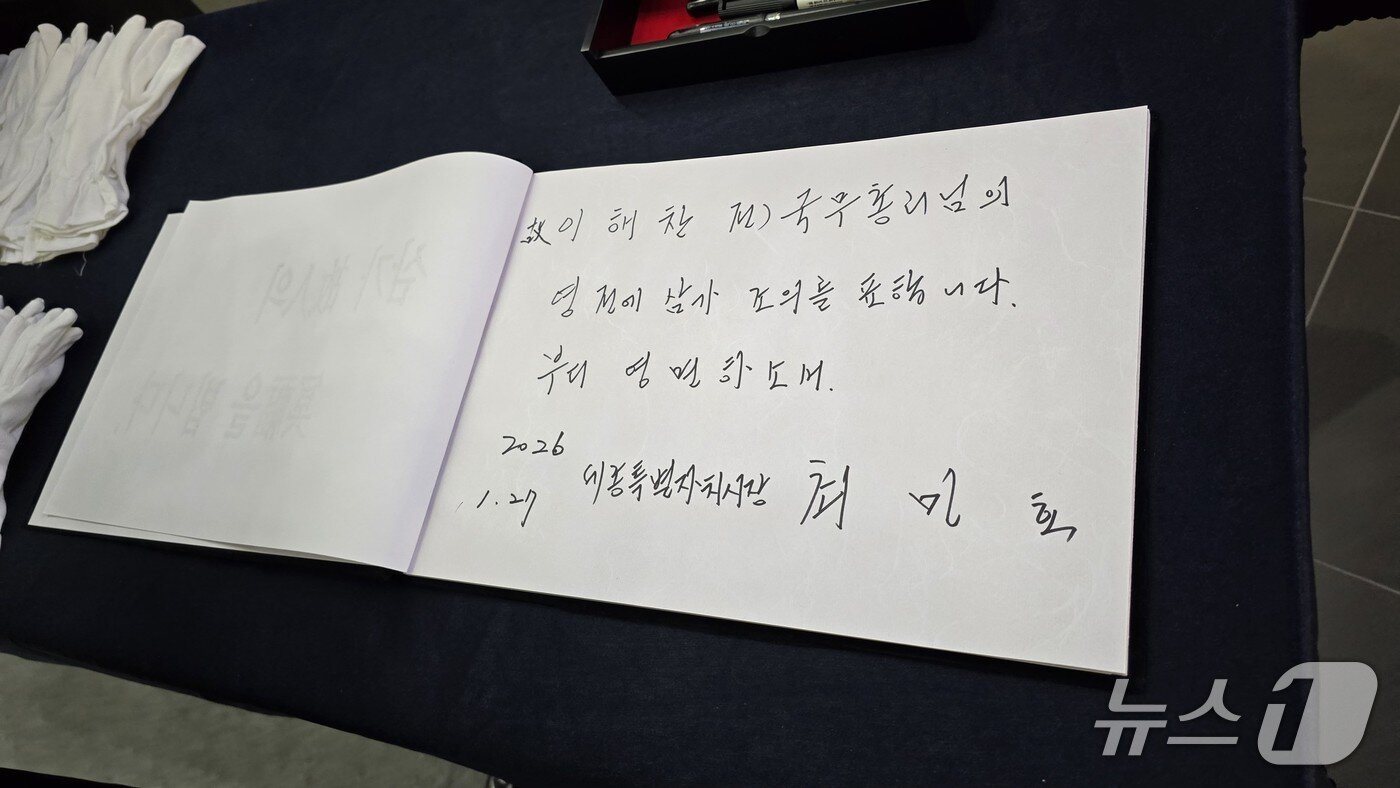 故 이해찬 전) 국무총리님의
영전에 삼가 조의를 표합니다.
부디 영면하소서.
2026
.1.27
세종특별자치시장 최민호
뉴스1